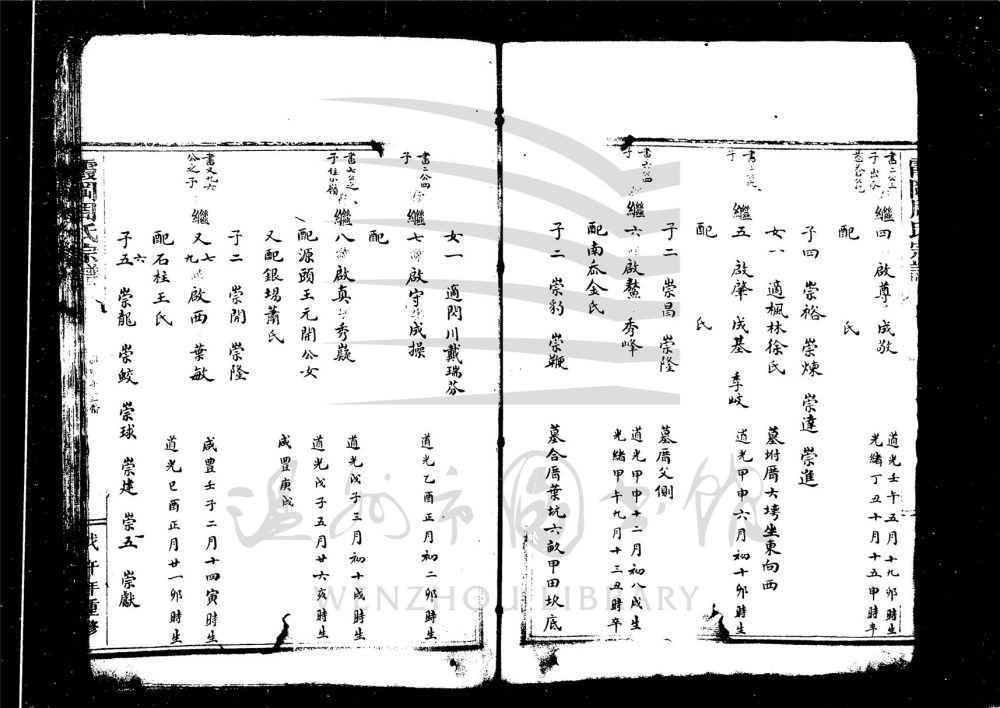 繼四 啟尊 成敬
道光壬午五月十九卯時生
光緒丁丑十月十五申時卒
配 氏
子四 崇裕 崇煉 崇達 崇進
女一 適楓林徐氏
墓坿厝大垮坐東向西
繼五 啟肇 成基 季岐
道光甲申六月初十卯時生
配 氏
子二 崇昌 崇隆
墓厝父側
書六公四子
繼六 啟鰲 秀峰
道光甲申十二月初八戌生
光緒甲午九月十三丑時卒
配南岙金氏
子二 崇豹 崇鞭
墓合厝葉坑六畝甲田坎底
女一 適閃川戴瑞芬
書二公四子
繼七 啟守 成操
道光乙酉正月初二卯時生
配
繼八 啟真 秀嶷
道光戊子三月初十戌時生
配源頭王元開公女
道光戊子五月廿六亥時生
又配銀場蕭氏
咸豐庚戌
子二 崇開 崇隆
書又九六公之子
又七九 啟西 葉敏
咸豐壬子二月十四寅時生
配石柱王氏
道光己酉正月廿一卯時生
子五六 崇龍 崇鮫 崇球 崇建 崇五 崇獻
霞岡周氏宗譜
戊午年重修
溫州市圖書館
WENZHOU LIBRARY